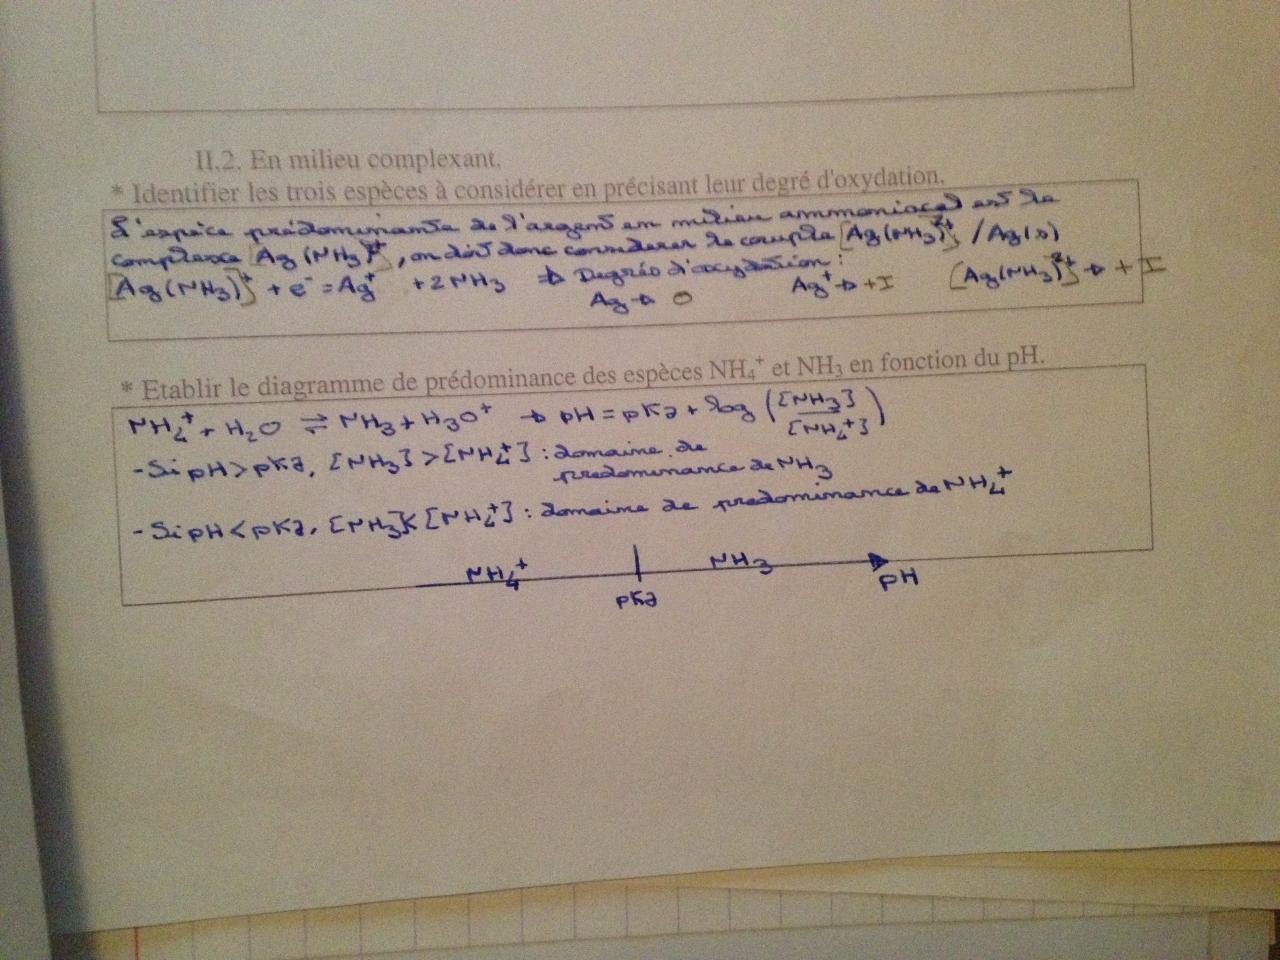 II.2. En milieu complexant.
* Identifier les trois espèces à considérer en précisant leur degré d'oxydation.
L'espèce prédominante de l'argent en milieu ammoniacal est le
complexe [Ag(NH3)2]+, on doit donc considerer le couple [Ag(NH3)2]+ / Ag(s)
[Ag(NH3)]+ + e- = Ag+ + 2NH3 => Degrés d'oxydation :
Ag → 0 Ag+ → +I [Ag(NH3)2]+ → +I
* Etablir le diagramme de prédominance des espèces NH4+ et NH3 en fonction du pH.
NH4+ + H2O ⇌ NH3 + H3O+ → pH = pKa + log ([NH3]/[NH4+])
- Si pH > pKa, [NH3] > [NH4+] : domaine de
predominance de NH3
- Si pH < pKa, [NH3] < [NH4+] : domaine de predominance de NH4+
NH4+ NH3
pKa pH